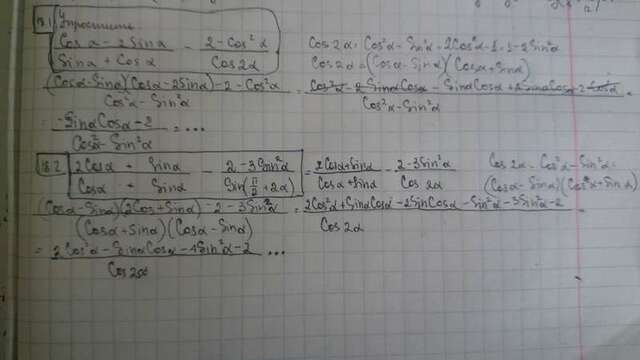 18.1 Упростить
(Cos α - 2Sin α)/(Sin α + Cos α) - (2 - Cos²α)/(Cos 2α)
Cos 2α = Cos²α - Sin²α = 2Cos²α - 1 = 1 - 2Sin²α
Cos 2α = (Cos α - Sin α)(Cos α + Sin α)
((Cos α - Sin α)(Cos α - 2Sin α) - 2 - Cos²α)/(Cos²α - Sin²α) = (Cos²α - 2Sin α Cos α - Sin α Cos α + 2Sin α Cos α - 2 - Cos²α)/(Cos²α - Sin²α) =
= (-Sin α Cos α - 2)/(Cos²α - Sin²α) = ...
18.2 (2Cos α + Sin α)/(Cos α + Sin α) - (2 - 3Sin²α)/(Sin(π/2 + 2α)) = (2Cos α + Sin α)/(Cos α + Sin α) - (2 - 3Sin²α)/(Cos 2α)
Cos 2α = Cos²α - Sin²α =
(Cos α - Sin α)(Cos α + Sin α)
((Cos α - Sin α)(2Cos + Sin α) - 2 - 3Sin²α)/((Cos α + Sin α)(Cos α - Sin α)) = (2Cos²α + Sin α Cos α - 2Sin Cos α - Sin²α - 3Sin²α - 2)/(Cos 2α) =
= (2Cos²α - Sin α Cos α - 4Sin²α - 2)/(Cos 2α) ...